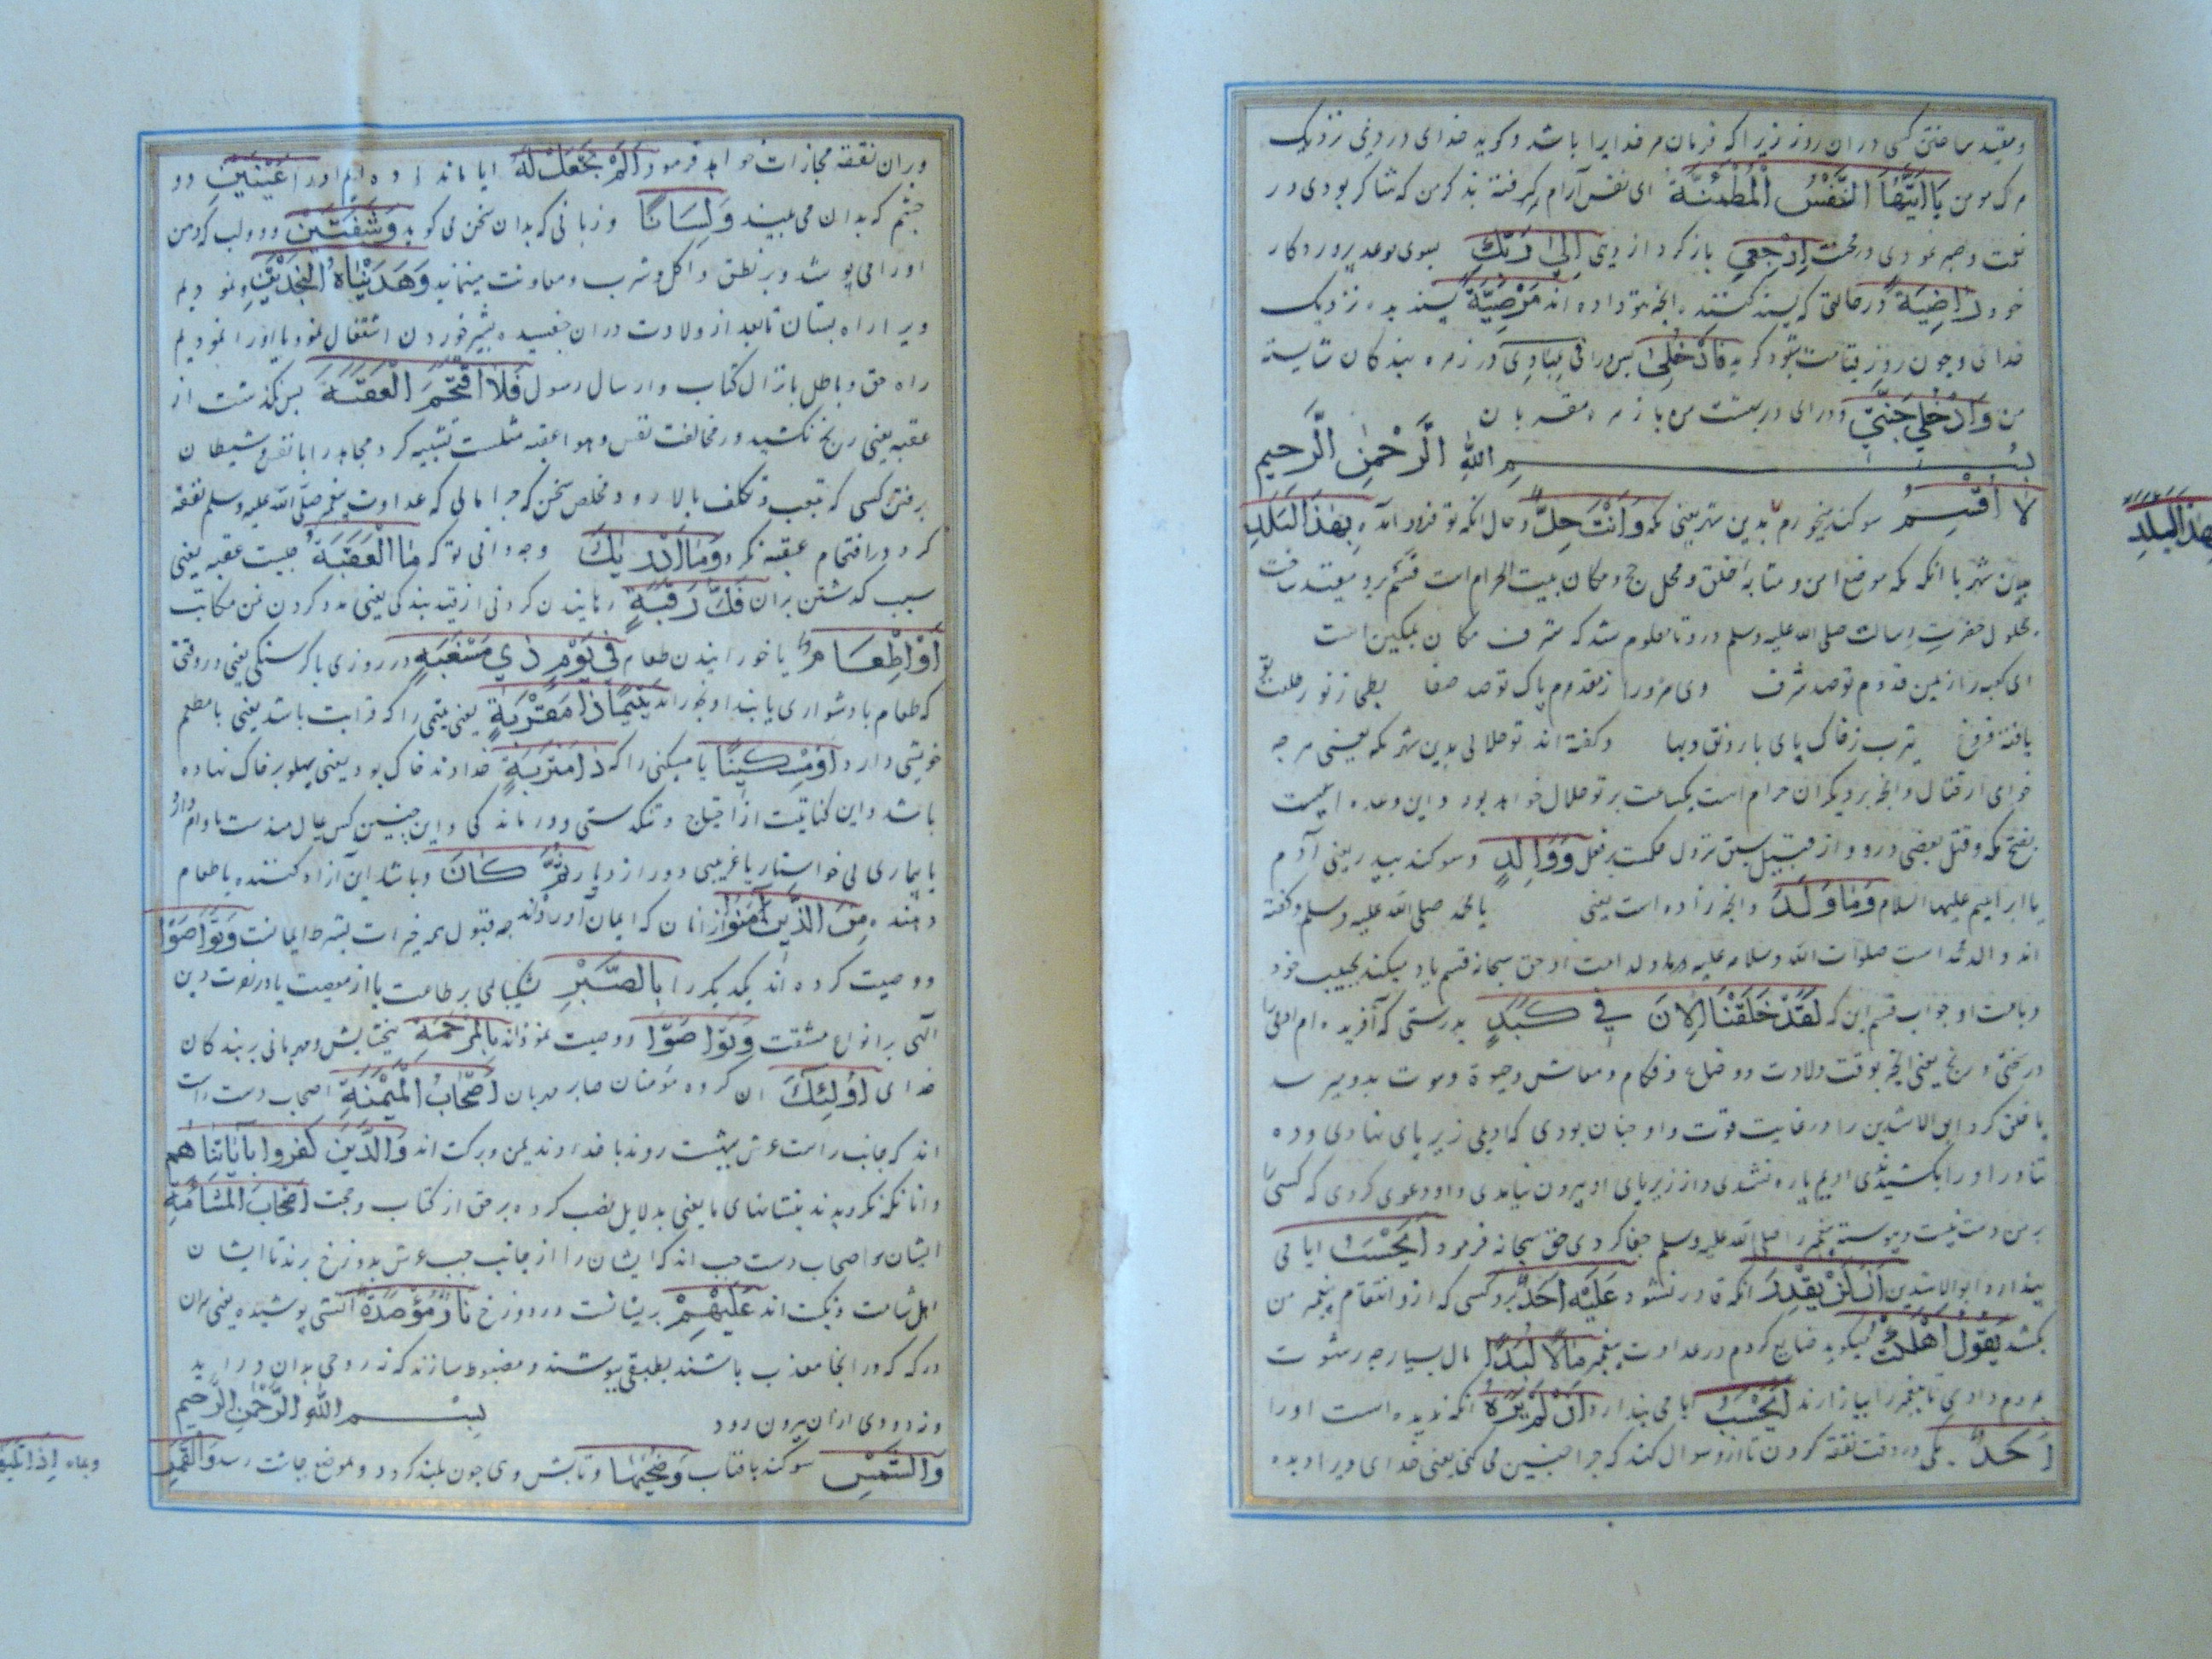 ومقید ساختن کسی در ان روز زیرا که فرمان مر خدایرا باشد و کوید خدای در دنی نزدیک
مرک مومن یا ایتها النفس المطمئنة ای نفس آرام گرفته بذکر من که شاکر بودی در
نعمت وصبر نمودی در محنت ارجعی باز کرد از دنیی الی ربک بسوی موعد پروردکار
خود راضیة در حالتی که پسند کننده انچه بتو داده اند مرضیة پسندیده نزدیک
خدای وچون روز قیامت شود کوید فادخلی پس درا فی عبادی در زمره بندکان شایسته
من وادخلی جنتی ودرای در بهشت من با زمره مقربان
بسم الله الرحمن الرحیم
لا اقسم سوکند میخورم بدین شهر یعنی مکه وانت حل وحال انکه تو فرود آمده بهذا البلد
بهذا البلد
شهر با انکه مکه موضع امن و مثابه خلق و محل حج ومکان بیت الحرام است قسم
بحلول حضرت رسالت صلی الله علیه وسلم درو تا معلوم شد که شرف مکان بمکین است
ای کعبه را از یمن قدوم تو صد شرف وی مروه را ز مقدم پاک تو صد صفا بطحی ز نور طلعت تو
یافته فروغ یثرب ز خاک پای با رونق وبها وکفته اند تو حلالی بدین شهر مکه یعنی هر چه
خوای از قتال وانچه بر دیکران حرام است یکساعت بر تو حلال خواهد بود واین وعده ایست
بفتح مکه وقتل بعضی درو واز قبیل سبق نزول حکمست بر فعل ووالد وسوکند بپدر یعنی آدم
یا ابراهیم علیها السلام وما ولد وانچه زاده است یعنی یا محمد صلی الله علیه وسلم وکفته
اند والد محمد است صلوات الله وسلامه علیه وما ولد امت او حق سبحانه قسم یاد میکند بحبیب خود
وبامت او جواب قسم این که لقد خلقنا الانسان فی کبد بدرستی که آفریده ام ادمی را
در سختی ورنج یعنی انچه بوقت ولادت ورضاع وفطام ومعاش وحیوة وموت بدو میرسد
یا خلق کرد ابو الاشدین را در غایت قوت واو چنان بودی که ادیمی زیر پای نهادی وده
تن اورا بکشیدندی ادیم پاره شدی واز زیر پای او بیرون نیامدی واو دعوی کردی که کسی را
بر من دست نیست وپیوسته پیغمبر را صلی الله علیه وسلم جفا کردی حق سبحانه فرمود ایحسب ایا می
پندارد ابو الاشدین ان لن یقدر انکه قادر نشود علیه احد برو کسی که ازو انتقام پیغمبر من
بکشد یقول اهلکت میکوید ضایع کردم در عداوت پیغمبر مالا لبدا مال بسیار جه رشوت
مردم دادی تا پیغمبر را بیازارند ایحسب ایا می پندارد ان لم یره انکه ندیده است اورا
احد یکی در وقت نفقه کردن تا ازو سوال کند که چرا چنین می کنی یعنی خدای ویرا دیده
وبران نفقه مجازات خواهد فرمود الم نجعل له ایا ما نداده ایم اورا عینین دو
چشم که بدان می بیند ولسانا وزبانی که بدان سخن می کوید وشفتین ودو لب که دهن
اورا می پوشد وبر نطق واکل وشرب ومعاونت مینماید وهدیناه النجدین ونمودیم
ویرا راه پستان تا بعد از ولادت دران چفسیده بشیر خوردن اشتغال نمود یا اورا نمودیم
راه حق وباطل بانزال کتاب وارسال رسول فلا اقتحم العقبة پس نکذشت از
عقبه یعنی رنج نکشید در مخالفت نفس وهوا عقبه مثلست تشبیه کرد مجاهد را با نفس وشیطان
برفتن کسی که بتعب وتکلف بالا رود ومخلص سخن که چرا مالی که عداوت پیغمبر صلی الله علیه وسلم نفقه
کرد در اقتحام عقبه نکرد وما ادریک وچه دانی تو که ما العقبة چیست عقبه یعنی
سبب کذشتن بران فک رقبة رهانیدن کردنی از قید بندکی یعنی مدد کردن ثمن مکاتبت
او اطعام یا خورانیدن طعام فی یوم ذی مسغبة در روزی با کرسنکی یعنی در وقتی
که طعام با دشواری یابند او بخوراند یتیما ذا مقربة یعنی یتیمی را که قرابت باشد یعنی با مطعم
خویشی دارد او مسکینا یا مسکینی را که ذا متربة خداوند خاک بود یعنی پهلو بر خاک نهاده
باشد واین کنایتست از احتیاج وتنکدستی ودرماندکی واین چنین کس عیال مندست یا وام دار
یا بیماری بی خواستار یا غریبی دور از دیار ثم کان وباشد این آزاد کننده یا طعام
دهنده من الذین آمنوا از انان که ایمان آورده اند چه قبول همه خیرات بشرط ایمانست وتواصوا
ووصیت کرده اند یکدیکر را بالصبر بشکیبائی بر طاعت یا از معصیت یا در نصرت دین
الهی بر انواع مشقت وتواصوا ووصیت نموده اند بالمرحمة ببخشایش ومهربانی بر بندکان
خدای اولئک ان کروه مومنان صابر مهربان اصحاب المیمنة اصحاب دست راست
اند که جانب راست عرش ببهشت روند یا خداوند یمن وبرکت اند والذین کفروا بآیاتنا هم
وانانکه نکرویدند بنشانهای ما یعنی بدلایل نصب کرده بر حق از کتاب وحجت اصحاب المشأمة
ایشان اصحاب دست چپ اند که ایشان را از جانب چپ عرش بدوزخ برند تا ایشان
اهل شامت ونکبت اند علیهم بریشانست در دوزخ نار مؤصدة اتشی پوشیده یعنی سران
درکه که در انجا معذب باشند بطبقی بپوشند ومضبوط سازند که نه روحی بدان دراید
ونه دودی ازان بیرون رود بسم الله الرحمن الرحیم
والشمس سوکند بافتاب وضحیها وتابش وی چون بلند کردد وبموضع چاشت رسد والقمر
وبماه اذا تلیها